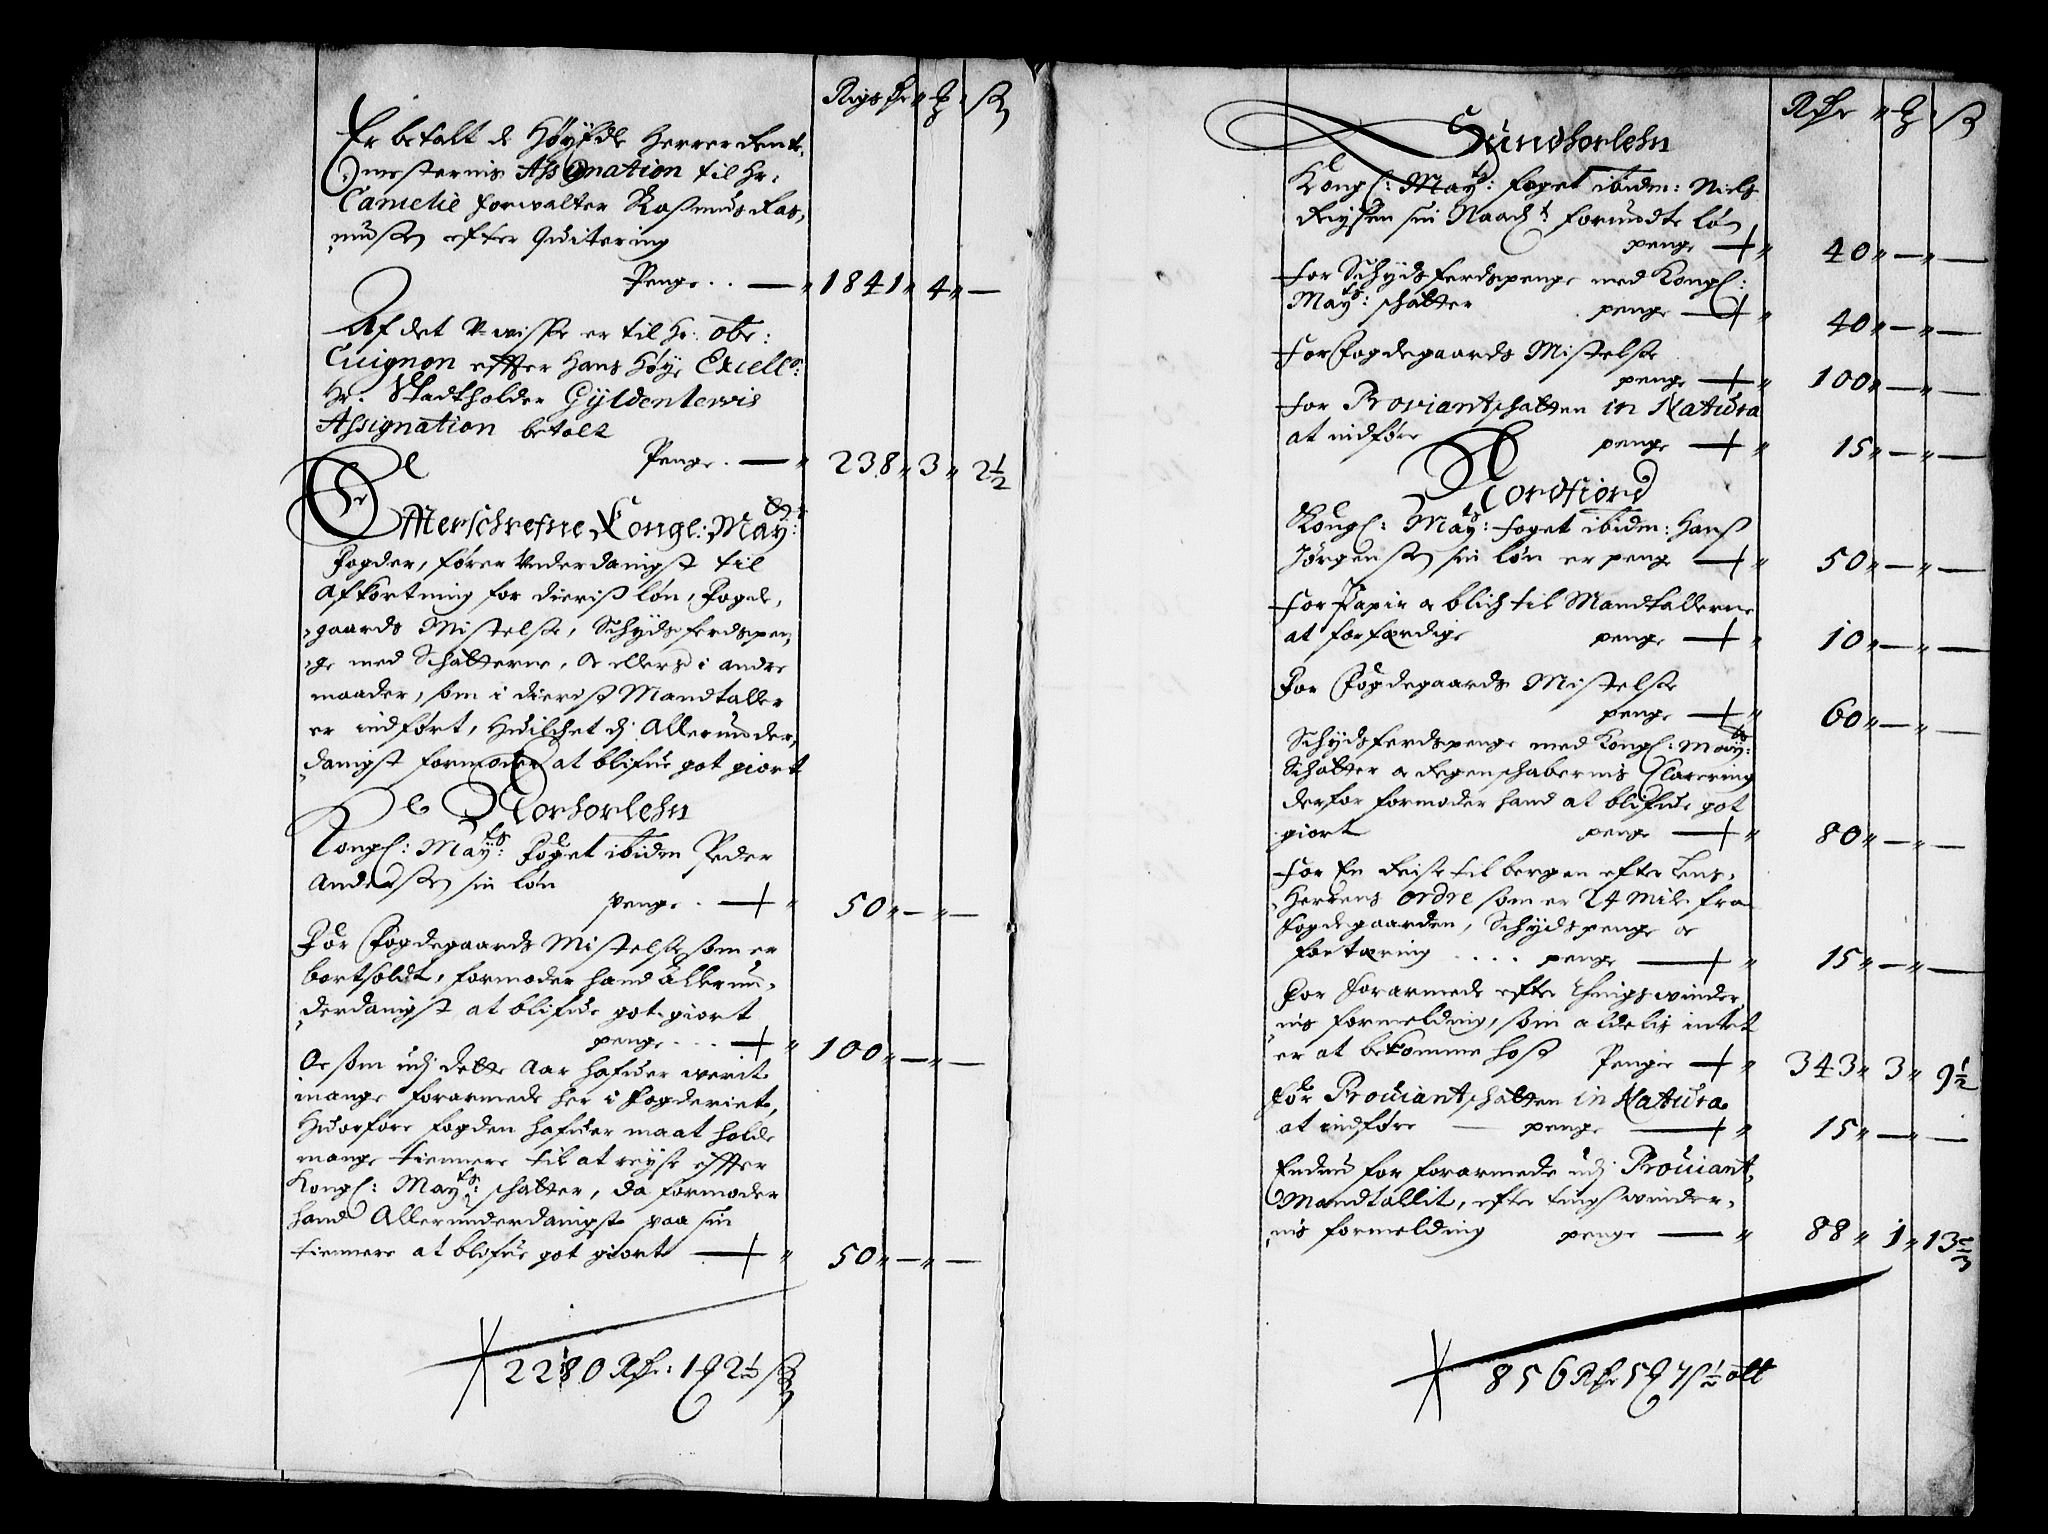 Rigs dr " ℔ " ß
Er betalt de Høyædle Herrer Rent,
mesternis Assignation til Hr:
Camelie forwalter Rasmus Ras,
mußen efter Quitering
Penge . . — " 1841 " 4 " —
Af det V-wisse er til Hr: Obr:
Cuignon effter Hans Høye Excellce:
Hr. Stadtholder Gyldenlewis
Assignation betalt
Penge . — " 238 " 3 " 2½
Effterschrefne Kongl: Mayts:
Fogder, fører Vnderdanigst til
Afkortning for dieriß løn, Fogde,
gaards Mistelse, Schydsferdspen,
ge med Schatterne, oc ellers i andre
maader, som i dieriß Mandtaller
er indført, Huilchet di Allerunder,
danigst formoder at blifue got giort
Norhorlehn
Kongl: Mayts: Foget ibidem Peder
Anderßen sin løn
penge . — " 50 " — " —
For Fogdegaards Mistelse som er
bortsoldt, formoder hand allerun,
derdanigst at blifue got giort
penge . . . — " 100 " — " —
Oc som udj dette Aar hafuer werit
mange forarmede her i fogderiet,
Huorfore fogden hafuer maat holde
mange tiennere til at reyse effter
Kongl: Mayts: schatter, da formoder
hand Allerunderdanigst paa sin
tiennere at blifue got giort — " 50 " — " —
2280 Rdr: 1 ℔ 2½ ß
Rdr " ℔ " ß
Sundhorlehn
Kongl: Mayts: foget ibidm: Niels
Riysen sin Naadt: forundte løn
penge — " 40 " — " —
for Schydsferdspenge med Kongl:
Mayts: schatter penge — " 40 " — " —
for Fogdegaards Mistelse
penge — " 100 " — " —
for Proviantschatten in Natura
at indføre penge — " 15 " — " —
Nordfiord
Kongl: Mayts: foget ibidm: Hanß
Jørgenßen sin løn er penge — " 50 " — " —
for Papir oc blech til Mandtallerne
at forfærdige penge — " 10 " — " —
For Fogdegaards Mistelse
penge — " 60 " — " —
Schydsferdspenge med Kongl: Mayts:
Schatter oc Regenschabernis Clarering
derfor formoder hand at blifue got
giort penge — " 80 " — " —
for En Reise til bergen efter Lens,
Herrens ordre som er 24 Mile fra
fogdegaarden, Schydspenge oc
fortæring . . . . penge — " 15 " — " —
For forarmede efter Thingswinder,
nis formelding, som aldelis intet
er at bekomme hoß Pengie — " 343 " 3 " 9½
for Prouiantschatten in Natura
at indføre — penge — " 15 " — " —
Endnu for forarmede udj Prouiant,
Mandtallit, efter tingswinder,
nis formelding penge — " 88 " 1 " 13⅔
856 Rdr 5 ℔ 7 ß ½ alt